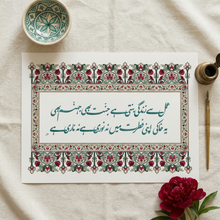 عمل سے زندگی بنتی ہے جنت بھی، جہنم بھی
یہ خاکی اپنی فطرت میں نہ نوری ہے نہ ناری ہے